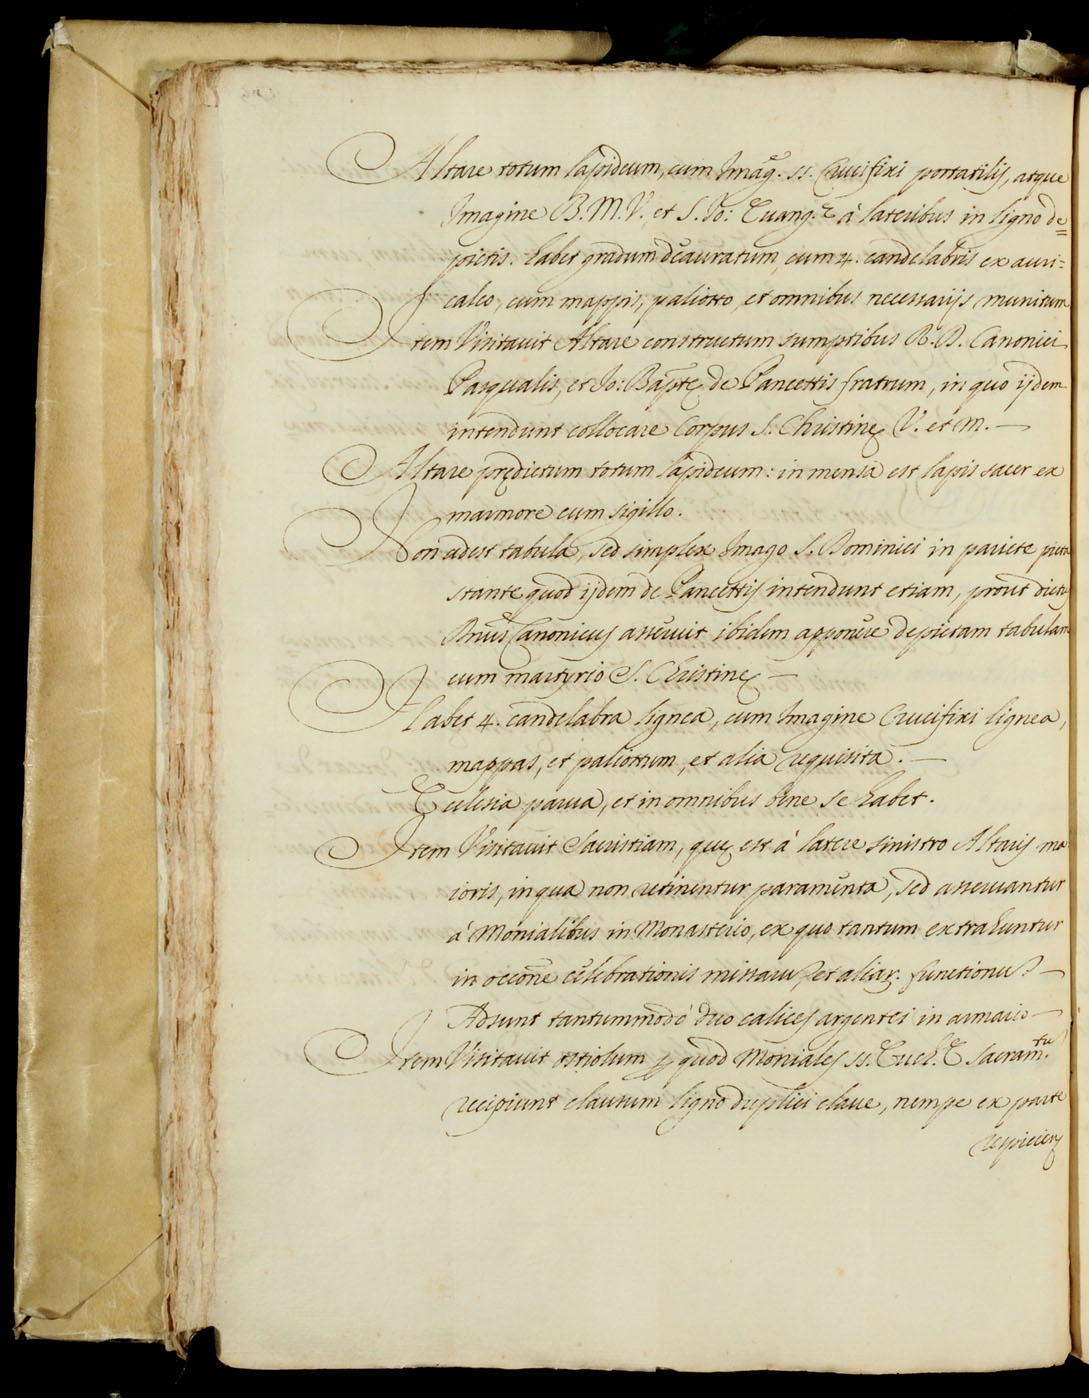 Altare totum lapideum, cum Imag. SS. Crucifixi portatilis, atque
Imagine B.M.V. et S. Io: Euang.ę à lateribus in ligno de=
pictis. habet gradum deauratum, cum 4. candelabris ex auri=
calco, cum mappis, paliotto, et omnibus necessarijs munitum
Item Visitauit Altare constructum sumptibus R.D. Canonici
Pasqualis, et Io: Bapt.ę de Pancettis fratrum, in quo ijdem
intendunt collocare Corpus S. Christinę V. et M. —
Altare prędictum totum lapideum: in mensa est lapis sacer ex
marmore cum sigillo.
Non adest tabula, sed simplex Imago S. Dominici in pariete picta
stante quod ijdem de Pancettis intendunt etiam, prout dictus
Dnus Canonicus asseruit ibidem apponere depictam tabulam
cum martyrio S. Christinę —
Habet 4. candelabra lignea, cum Imagine Crucifixi lignea,
mappas, et paliottum, et alia requisita. —
Ecclesia parua, et in omnibus bene se habet.
Item Visitauit Sacristiam, quę est à latere sinistro Altaris ma
ioris, in qua non retinentur paramenta, sed asseruantur
à Monialibus in Monasterio, ex quo tantum extrahuntur
in occone celebrationis missarum, et aliar. functionum. —
Adsunt tantummodo duo calices argentei in armario —
Item Visitauit ostiolum p quod Moniales SS. Euch.ę Sacram.tu
recipiunt clausum ligno duplici claue, nempe ex parte
respiciens